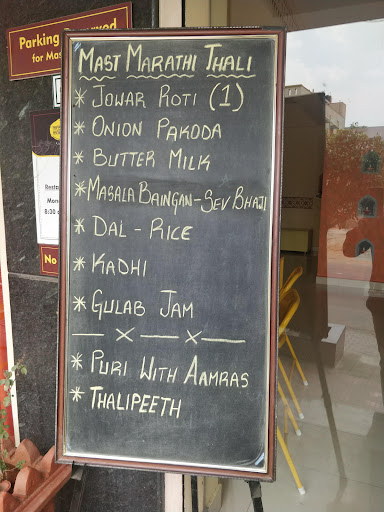 Parking
for Mas
MAST MARATHI THALI
* JOWAR ROTI (1)
* ONION PAKODA
* BUTTER MILK
* MASALA BAINGAN-SEV BHAJI
* DAL - RICE
* KADHI
* GULAB JAM
— x — x —
* PURI WITH AAMRAS
* THALIPEETH
Resta
Mon
8:30
No